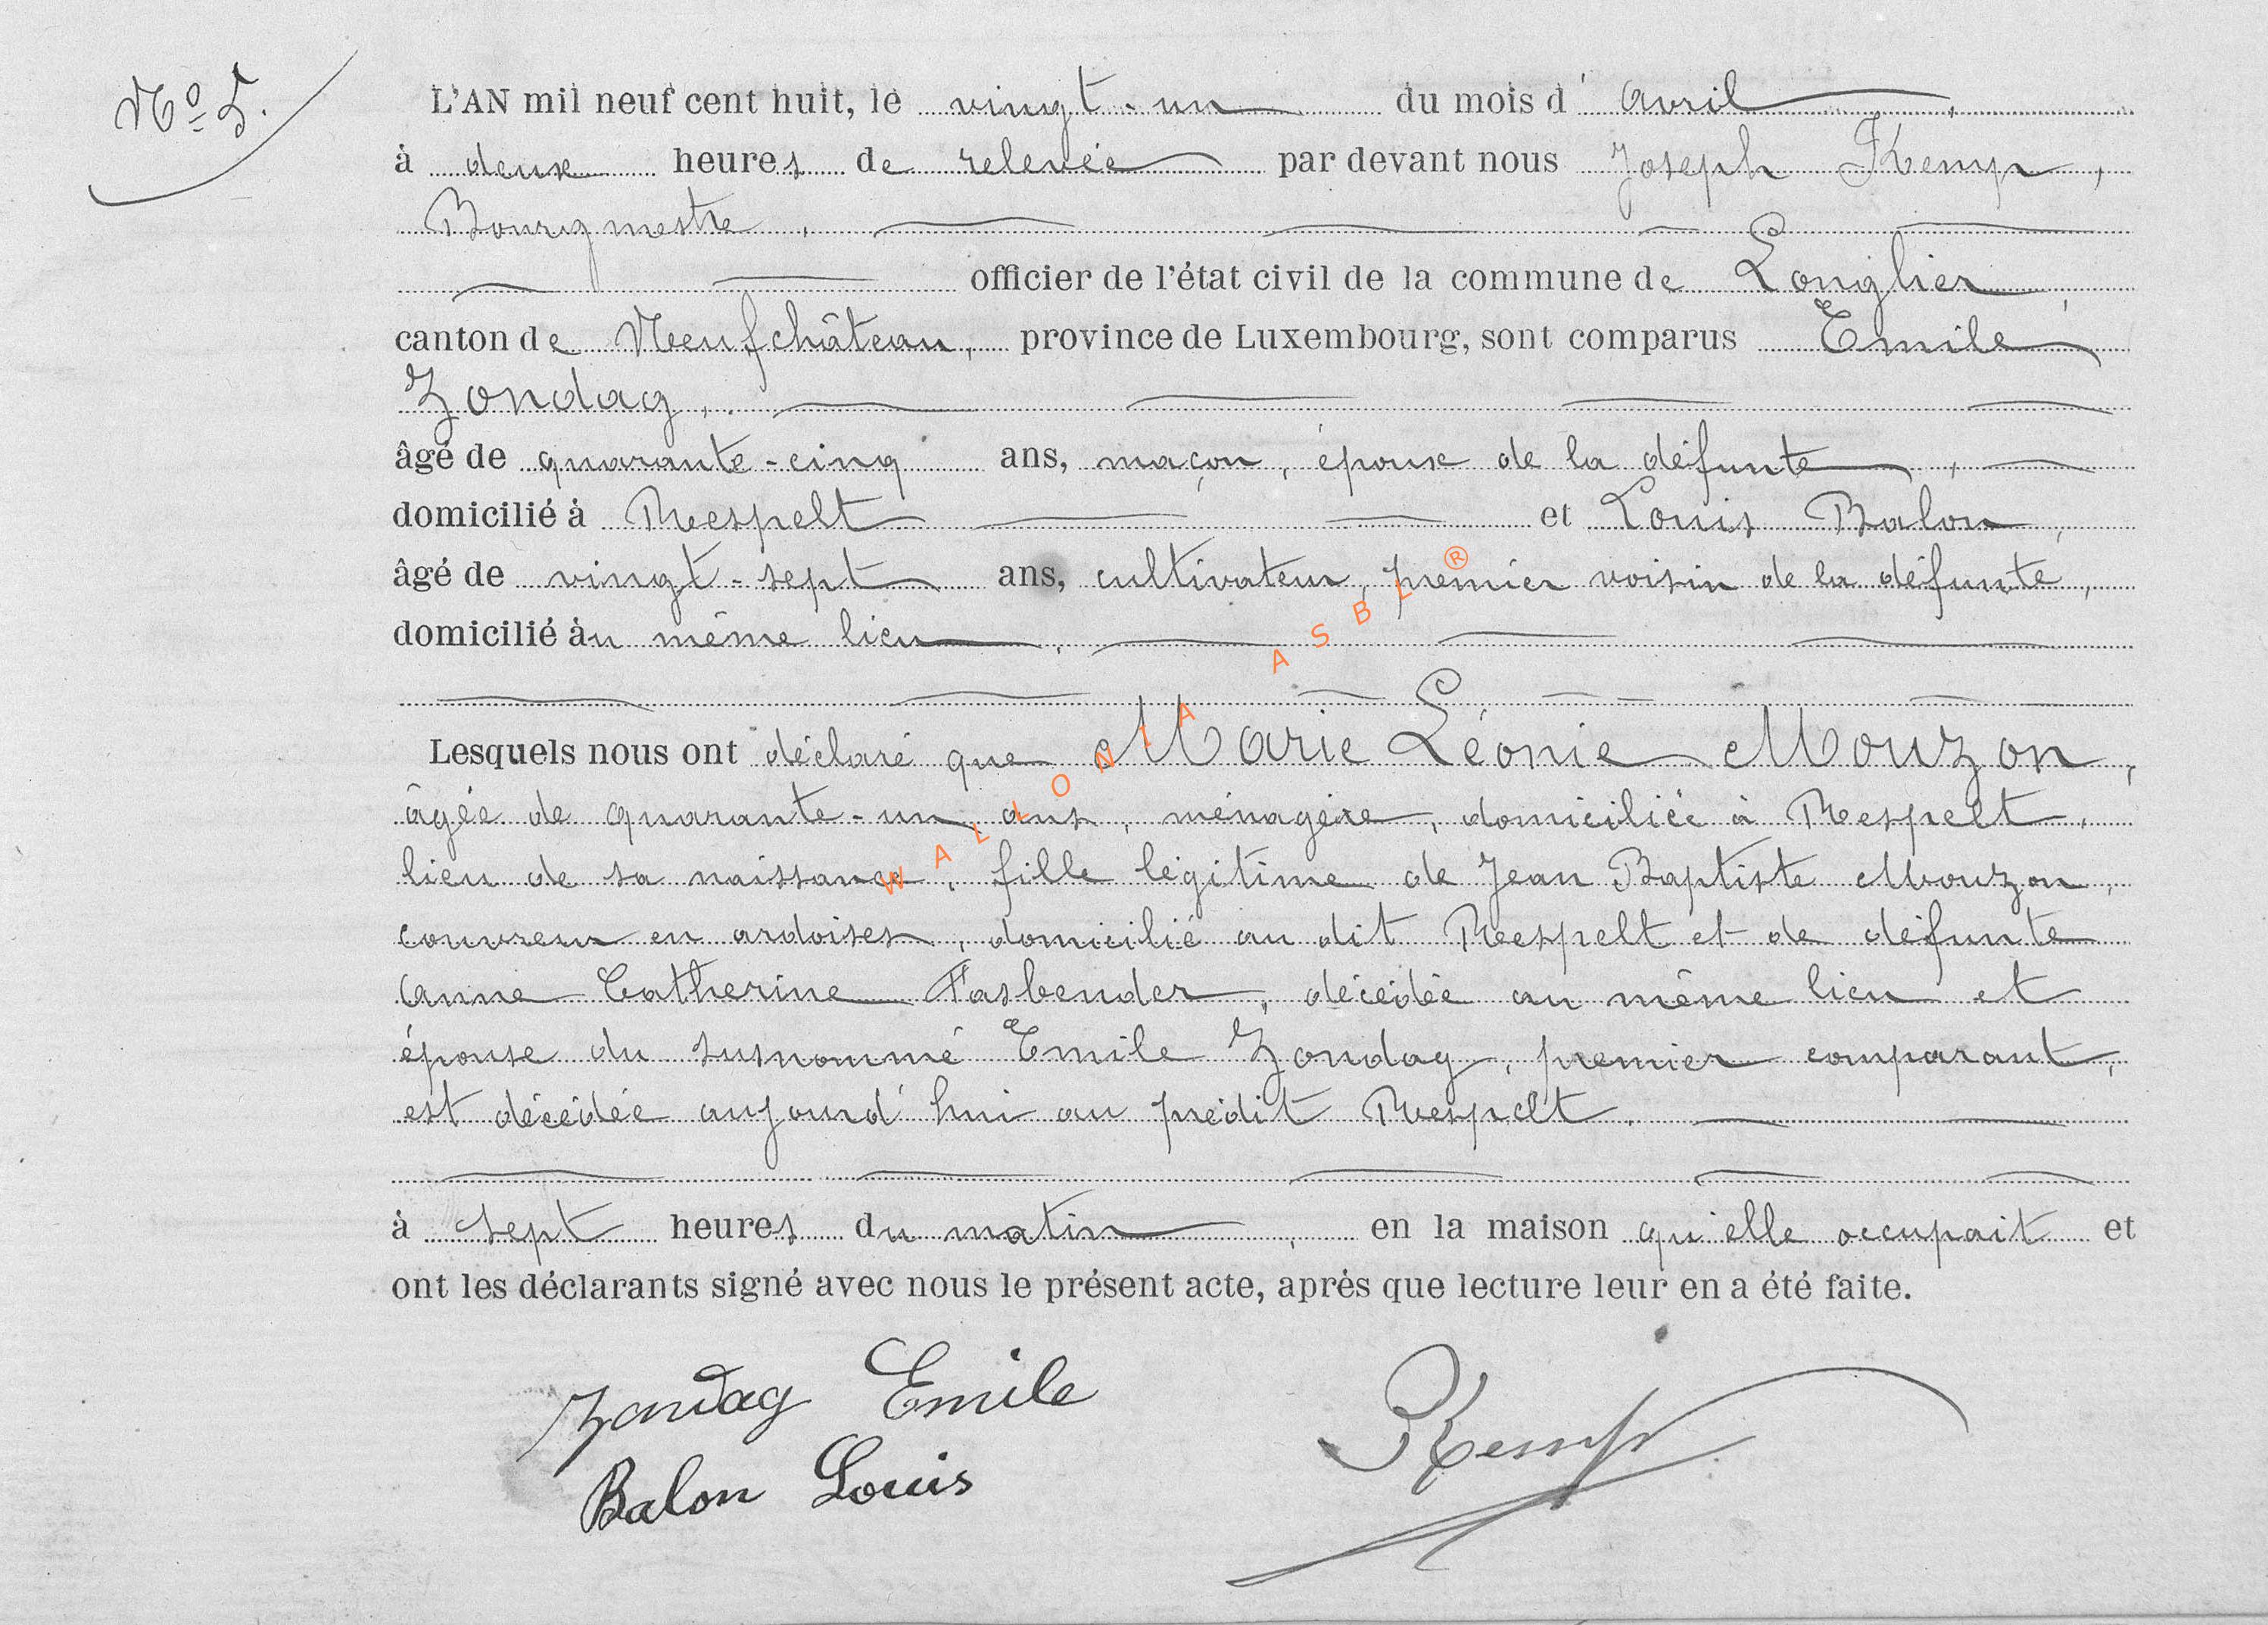 Nº 5.
L'AN mil neuf cent huit, le vingt-un du mois d'avril,
à deux heures de relevée par devant nous Joseph Kemp,
Bourgmestre,
officier de l'état civil de la commune de Longlier,
canton de Neufchâteau, province de Luxembourg, sont comparus Emile
Zondag,
âgé de quarante-cinq ans, maçon, époux de la défunte,
domicilié à Respelt et Louis Balon,
âgé de vingt-sept ans, cultivateur, premier voisin de la défunte,
domicilié au même lieu,
Lesquels nous ont déclaré que Marie Léonie Mouzon,
âgée de quarante-un ans, ménagère, domiciliée à Respelt,
lieu de sa naissance, fille légitime de Jean Baptiste Mouzon,
couvreur en ardoises, domicilié au dit Respelt et de défunte
Anne Catherine Fasbender, décédée au même lieu et
épouse du susnommé Emile Zondag, premier comparant,
est décédée aujourd'hui au prédit Respelt.
à sept heures du matin, en la maison qu'elle occupait et
ont les déclarants signé avec nous le présent acte, après que lecture leur en a été faite.
Zondag Emile
Kemp
Balon Louis
WALLONIA ASBL ®